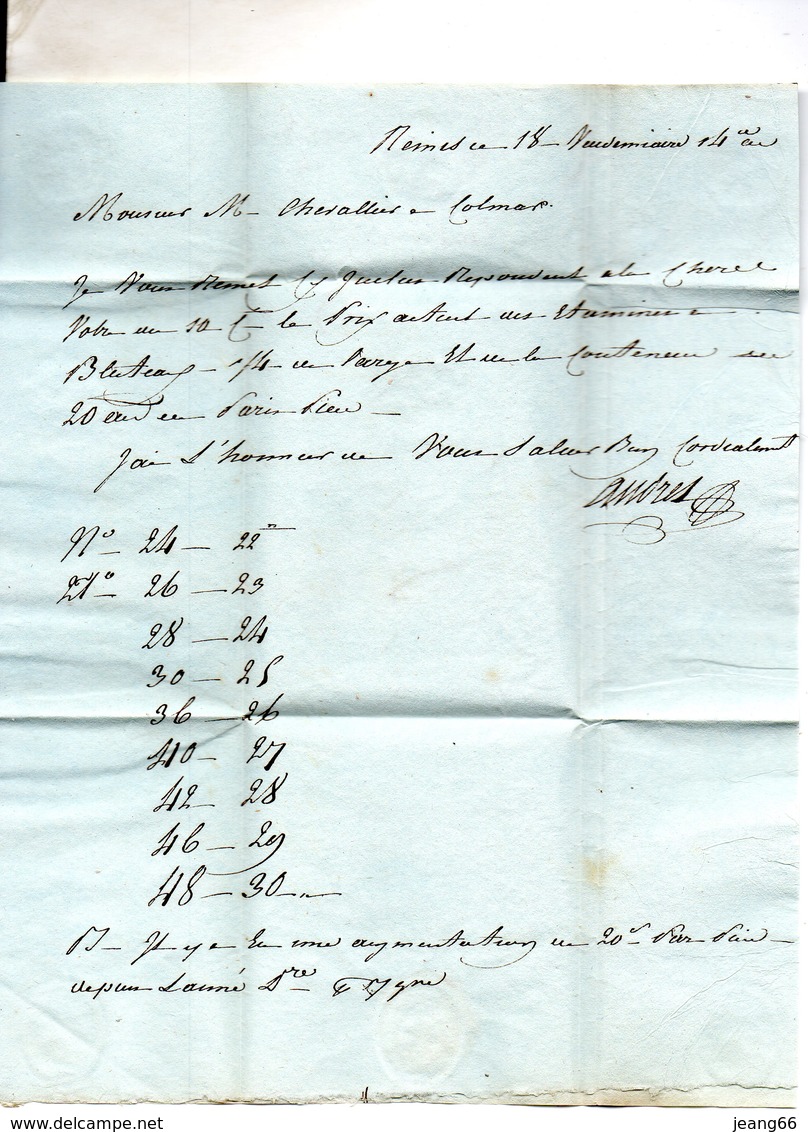 Reims ce 18 Vendemiaire 14 an
Monsieur M Chevallier a Colmar.
Je Vous Remet Cy Inclus Repondant a la Cherie
Votre du 10 Ct le Prix actuel des Etamines a
Bluteau 1/4 de Large Et de la Contenance de
20 au en Paris Piece
Jai L'honneur de Vous Saluer Bien Cordialement
Andres
No 24 - 22
Do 26 - 23
28 - 24
30 - 25
36 - 26
40 - 27
42 - 28
46 - 29
48 - 30
Il y a Eu une augmentation de 20s Par Piece
depuis Lanné Dre
jeang66